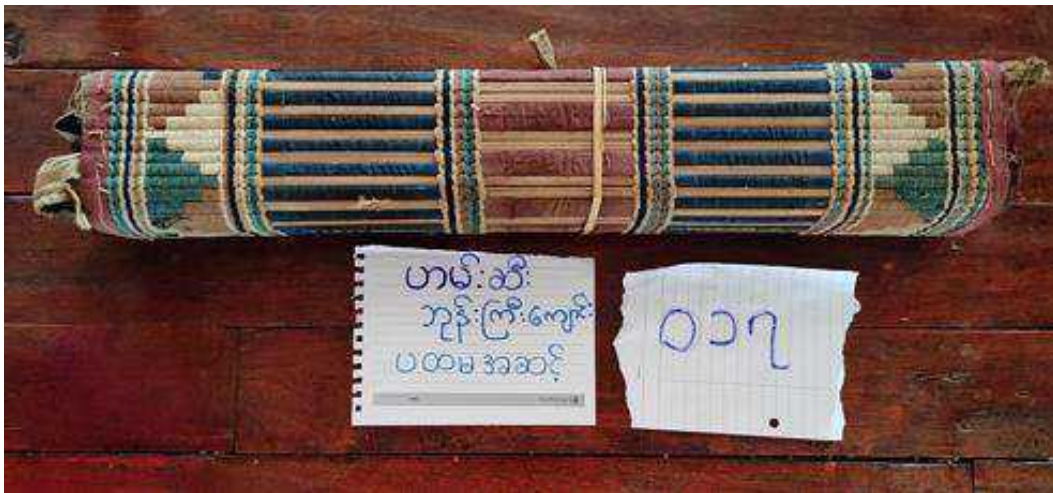 ဟမ်းဆီး
ဘုန်းကြီးကျောင်း
ပထမအဆင့်
၀၁၇